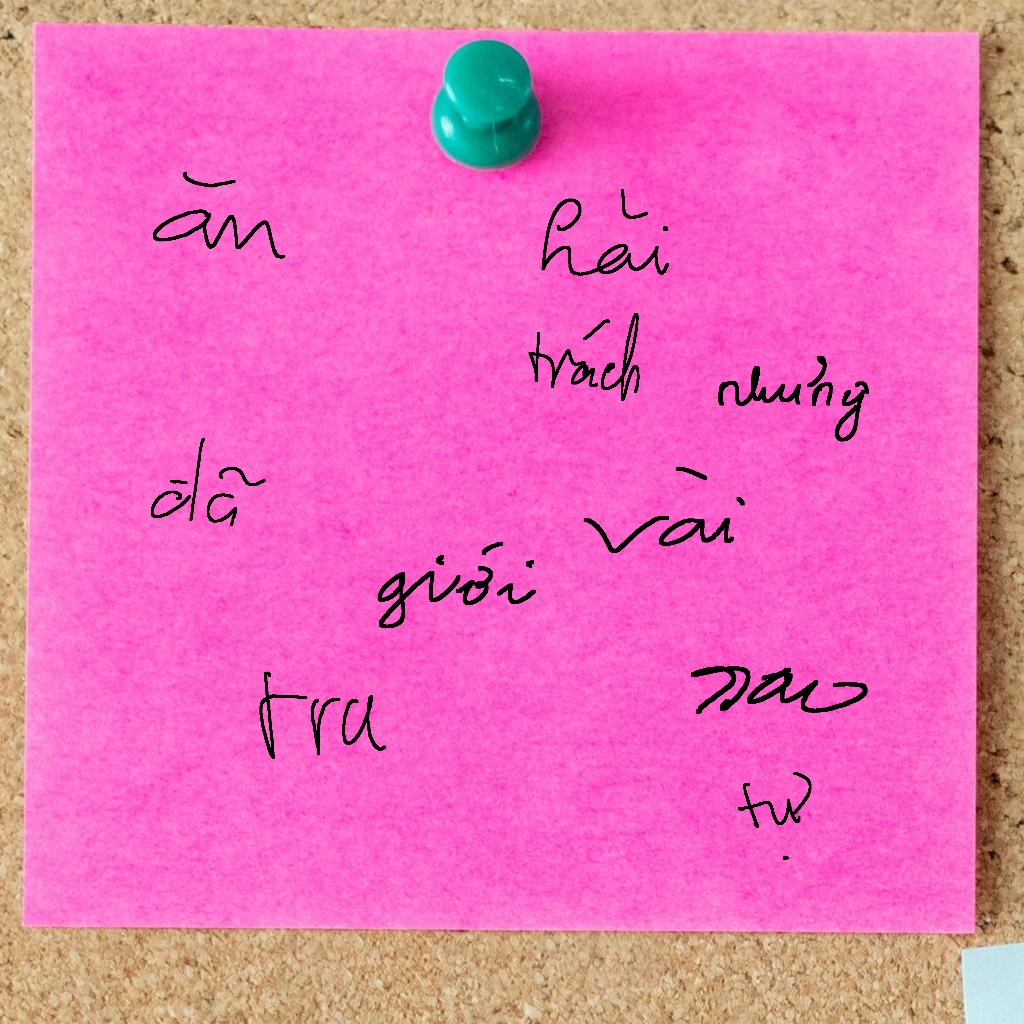 ăn
hài
trách
nhưng
đã
vài
giới
tra
sao
tự